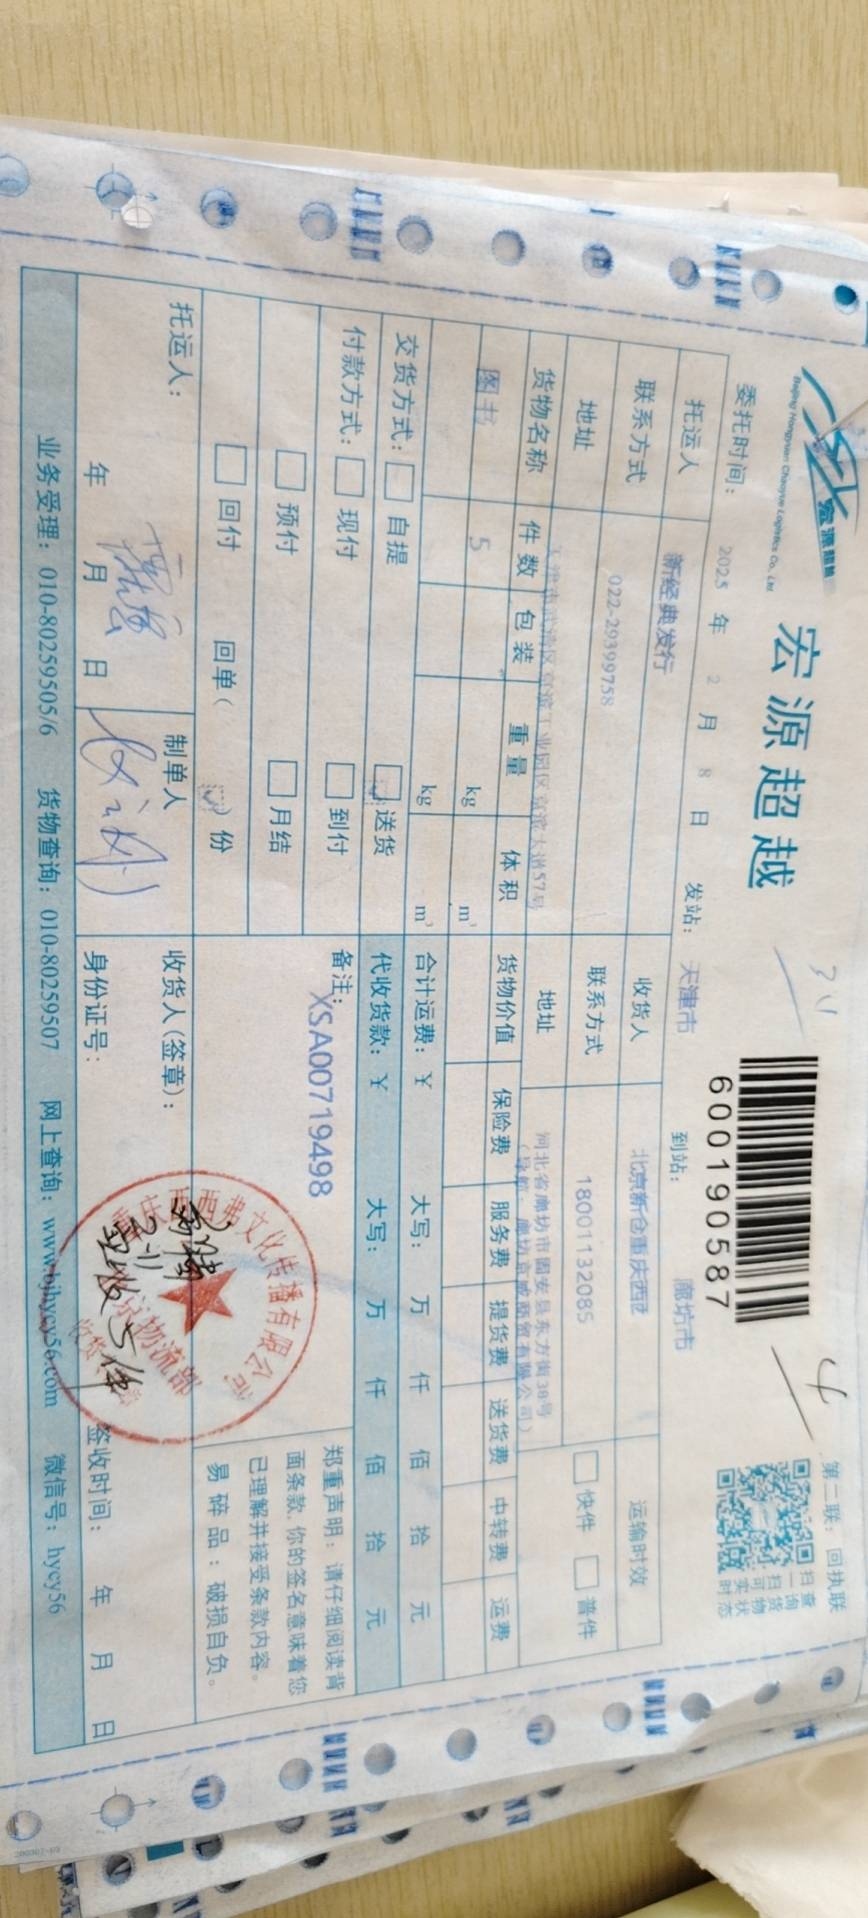 宏源超越
Beijing Hongyuan Chaoyue Logistics Co., Ltd
宏源超越
600190587
第二联：回执联
扫一扫可实时
查询货物状态
4
委托时间： 2025 年 2 月 8 日 发站： 天津市 到站： 廊坊市
托运人 新经典发行 收货人 北京新仓重庆西西 运输时效
联系方式 022-29399758 联系方式 18001132085 快件 普件
地址 天津市武清区京滨工业园区京滨大道57号 地址 河北省廊坊市固安县东方街38号
货物名称 件数 包装 重量 体积 货物价值 保险费 服务费 提货费 送货费 中转费 运费
图书 5 kg m³
kg m³ 合计运费：￥ 大写： 万 仟 佰 拾 元
交货方式： 自提 送货 代收货款：￥ 大写： 万 仟 佰 拾 元
付款方式： 现付 到付 备注：
XSA00719498
预付 月结
回付 回单（ ）份
郑重声明：请仔细阅读背
面条款，你的签名意味着您
已理解并接受条款内容。
易碎品：破损自负。
托运人： 制单人 收货人（签章）：
年 月 日 身份证号： 签收时间： 年 月 日
重庆西西弗文化传播有限公司
北京物流部
业务受理：010-80259505/6 货物查询：010-80259507 网上查询：www.bjhycy56.com 微信号：hycy56